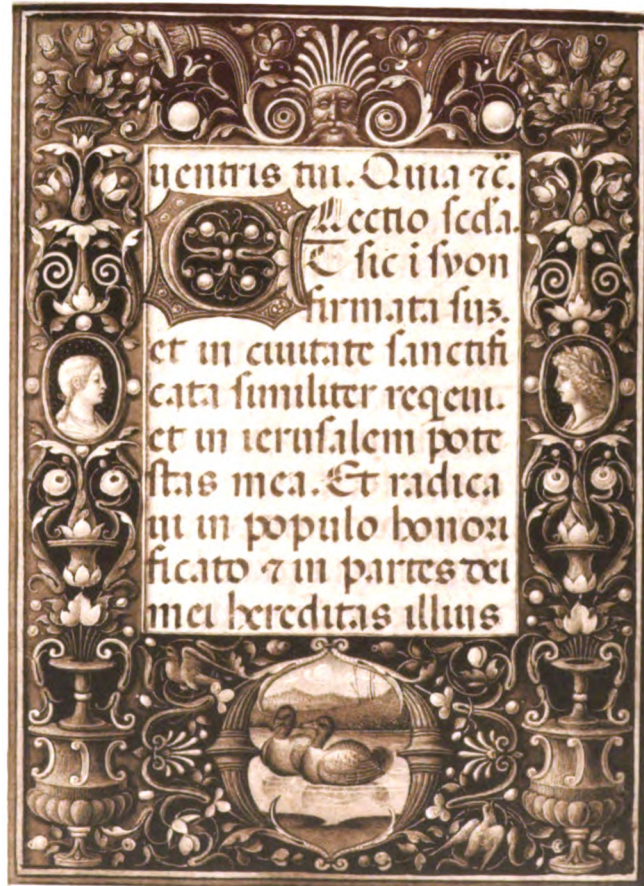 uentris tui. Quia ⁊c̄.
Lectio scďa.
ET sic i syon
firmata suꝫ.
et in ciuitate sanctifi
cata similiter reqeui.
et in ierusalem pote
stas mea. Et radica
ui in populo honori
ficato ⁊ in partes dei
mei hereditas illius